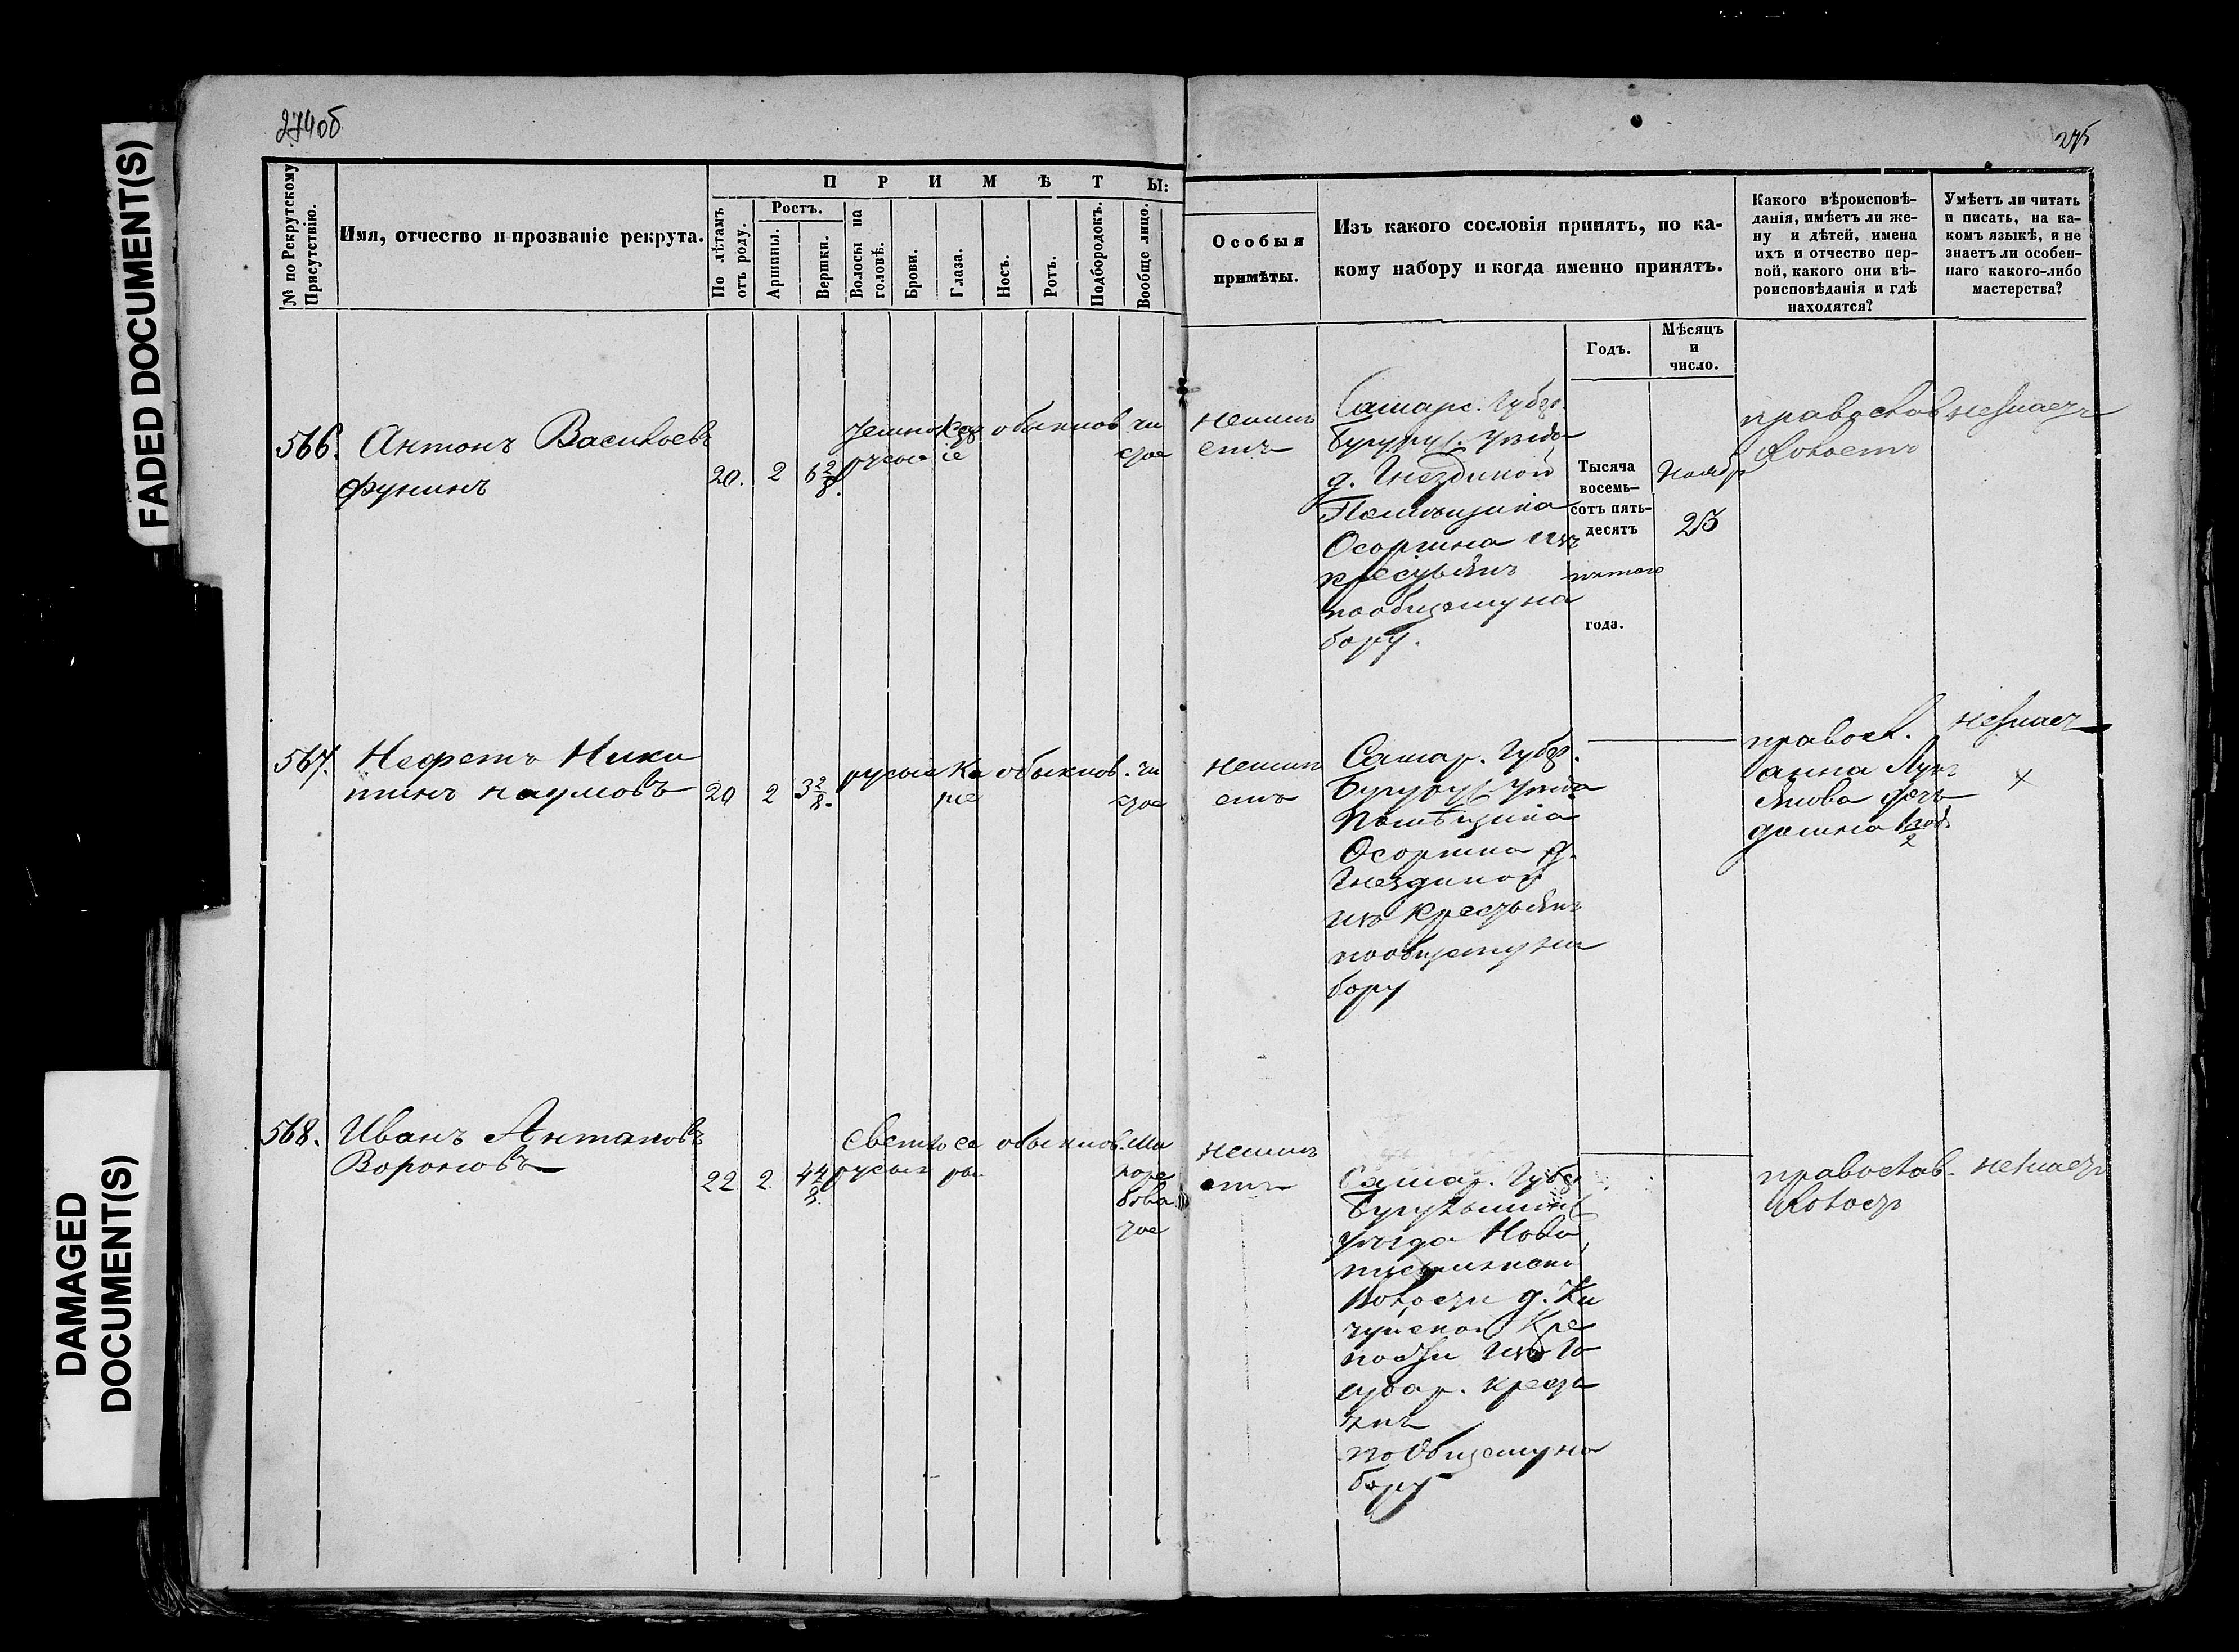 FADED DOCUMENT(S)
DAMAGED
DOCUMENT(S)
274об
275
№ по Рекрутскому
Присутствію.
Имя, отчество и прозваніе рекрута.
П Р И М Ѣ Т Ы:
По лѣтамъ
отъ роду.
Ростъ.
Аршины.
Вершки.
Волосы на
головѣ.
Брови.
Глаза.
Носъ.
Ротъ.
Подбородокъ.
Вообще лицо.
Особыя
примѣты.
Изъ какого сословія принятъ, по ка-
кому набору и когда именно принятъ.
Годъ.
Мѣсяцъ
и
число.
Какого вѣроисповѣ-
данія, имѣетъ ли же-
ну и дѣтей, имена
ихъ и отчество пер-
вой, какого они вѣ-
роисповѣданія и гдѣ
находятся?
Умѣетъ ли читать
и писать, на ка-
комъ языкѣ, и не
знаетъ ли особен-
наго какого-либо
мастерства?
566. Антонъ Васильевъ
Фунинъ
20. 2 6 2/8.
темно
русые
ка
ріе
обыкнов.
чи
стое
неим
еетъ
Самарс. Губер.
Бугурус. Уезда
д. Гнездиной
Помѣщика
Осоргина изъ
крестьянъ
пообщему на
бору.
Тысяча
восемь-
сотъ пять-
десятъ
пятого
года.
Ноябр
23
православ
холостъ
незнаетъ
567. Нефетъ Ники
тинъ Наумовъ
20 2 3 2/8.
русые
ка
ріе
обыкнов.
чи
стое
неим
еетъ
Самар. Губер.
Бугурус. Уезда
Помѣщика
Осоргина д.
Гнездиной
изъ крестьянъ
пообщему на
бору
правосл.
анна Лукъ
янова дочь
домна 1 1/2 год.
незнаетъ
568. Иванъ Антоновъ
Вороновъ
22 2 4 4/8.
светло
русые
се
рые
обыкнов.
ше
ро
хова
тое
неим
еетъ
Самар. Губер
Бугульминс
уезда Ново
письмянской
Волости д. Ки
чуйской Кре
пости изъ Го
судар. кресть
янъ
по Общему на
бору
православ.
холостъ
незнаетъ